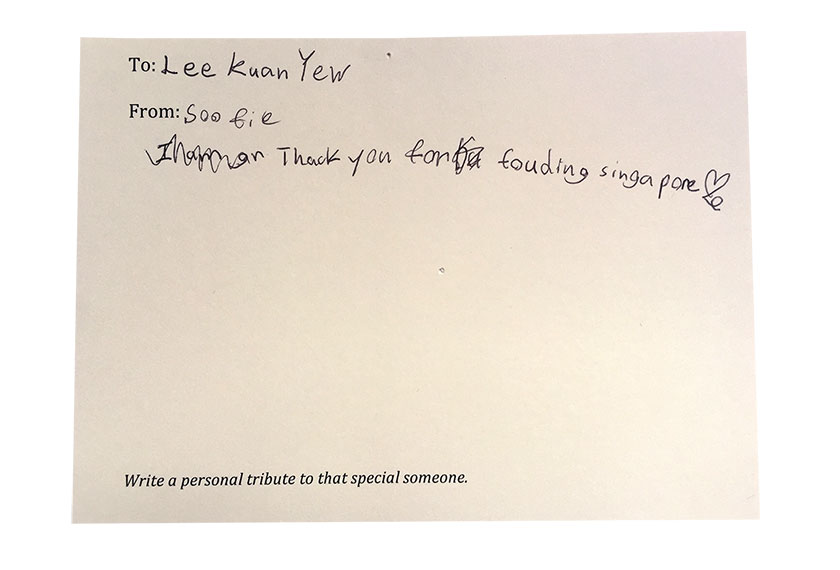 To: Lee Kuan Yew
From: Soofie
Thack you for fouding singapore
Write a personal tribute to that special someone.